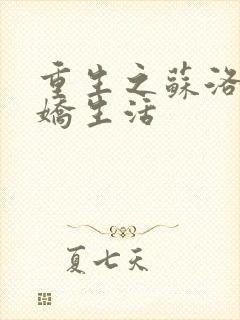 重生之蘇洛
嬌生活
夏七天